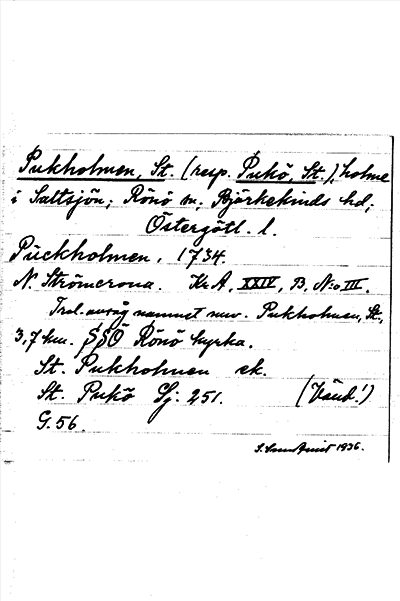 Pukholmen, St. (resp. Pukö, St.), holme
i Saltsjön; Rönö sn, Björkekinds hd;
Östergötl. l.
Puckholmen, 1734.
N. Strömcrona. Kr A, XXIV, B. N:o III.
Trol. avsåg namnet nuv. Pukholmen, St.,
3,7 km. SSÖ Rönö kyrka.
St. Pukholmen ek.
St. Pukö Sj: 251. (Vänd!)
G. 56.
1936.